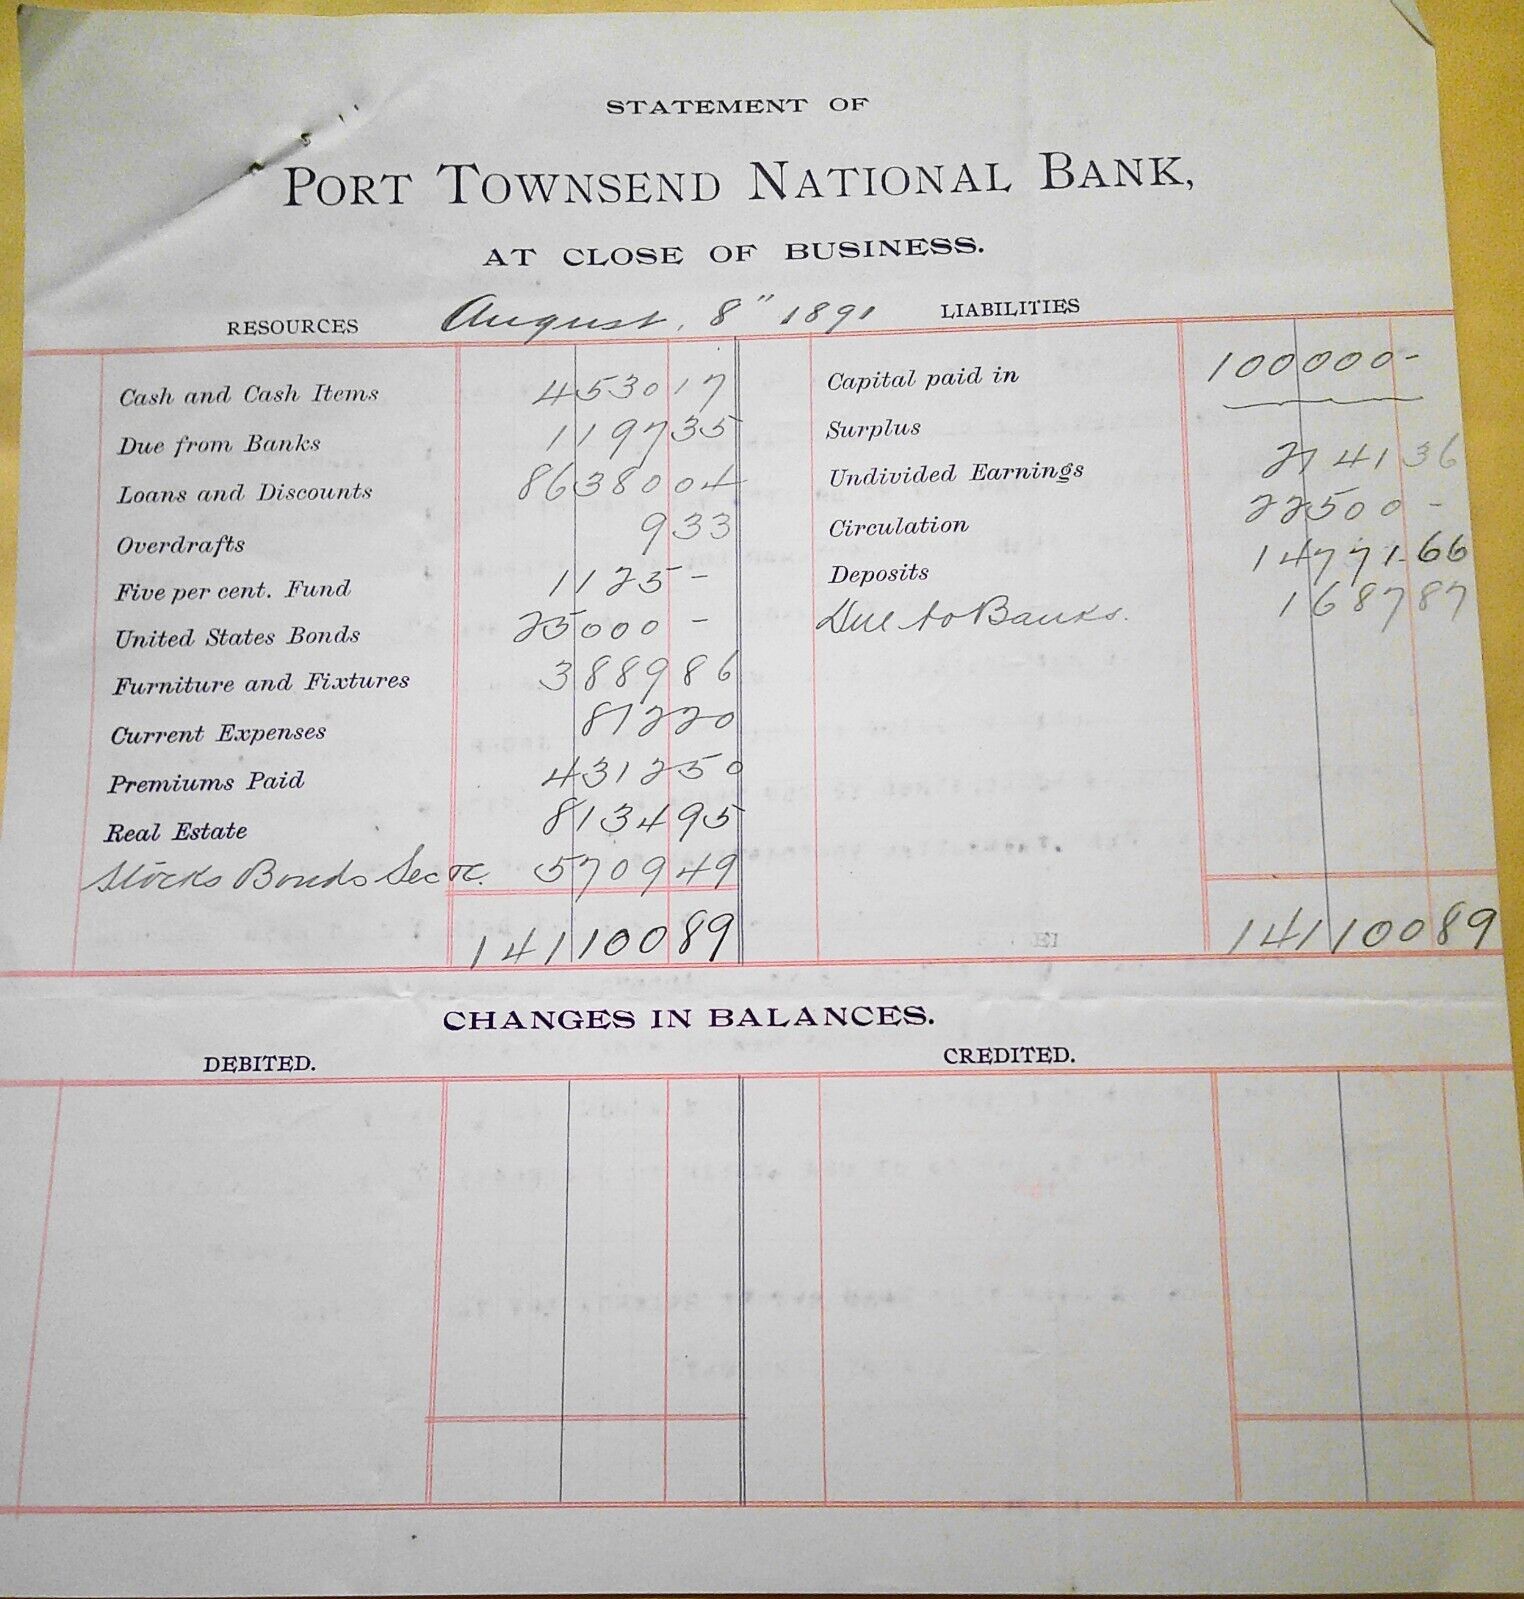 STATEMENT OF
PORT TOWNSEND NATIONAL BANK,
AT CLOSE OF BUSINESS.
RESOURCES August, 8" 1891 LIABILITIES
Cash and Cash Items 4530 17 Capital paid in 100000-
Due from Banks 1197 35 Surplus
Loans and Discounts 86380 04 Undivided Earnings 2141 36
Overdrafts 9 33 Circulation 22500 -
Five per cent. Fund 1125 - Deposits 14771.66
United States Bonds 25000 - Due to Banks. 1687 87
Furniture and Fixtures 3889 86
Current Expenses 812 20
Premiums Paid 4312 50
Real Estate 8134 95
Stocks Bonds Sec &c. 5709 49
141100 89 141100 89
CHANGES IN BALANCES.
DEBITED. CREDITED.